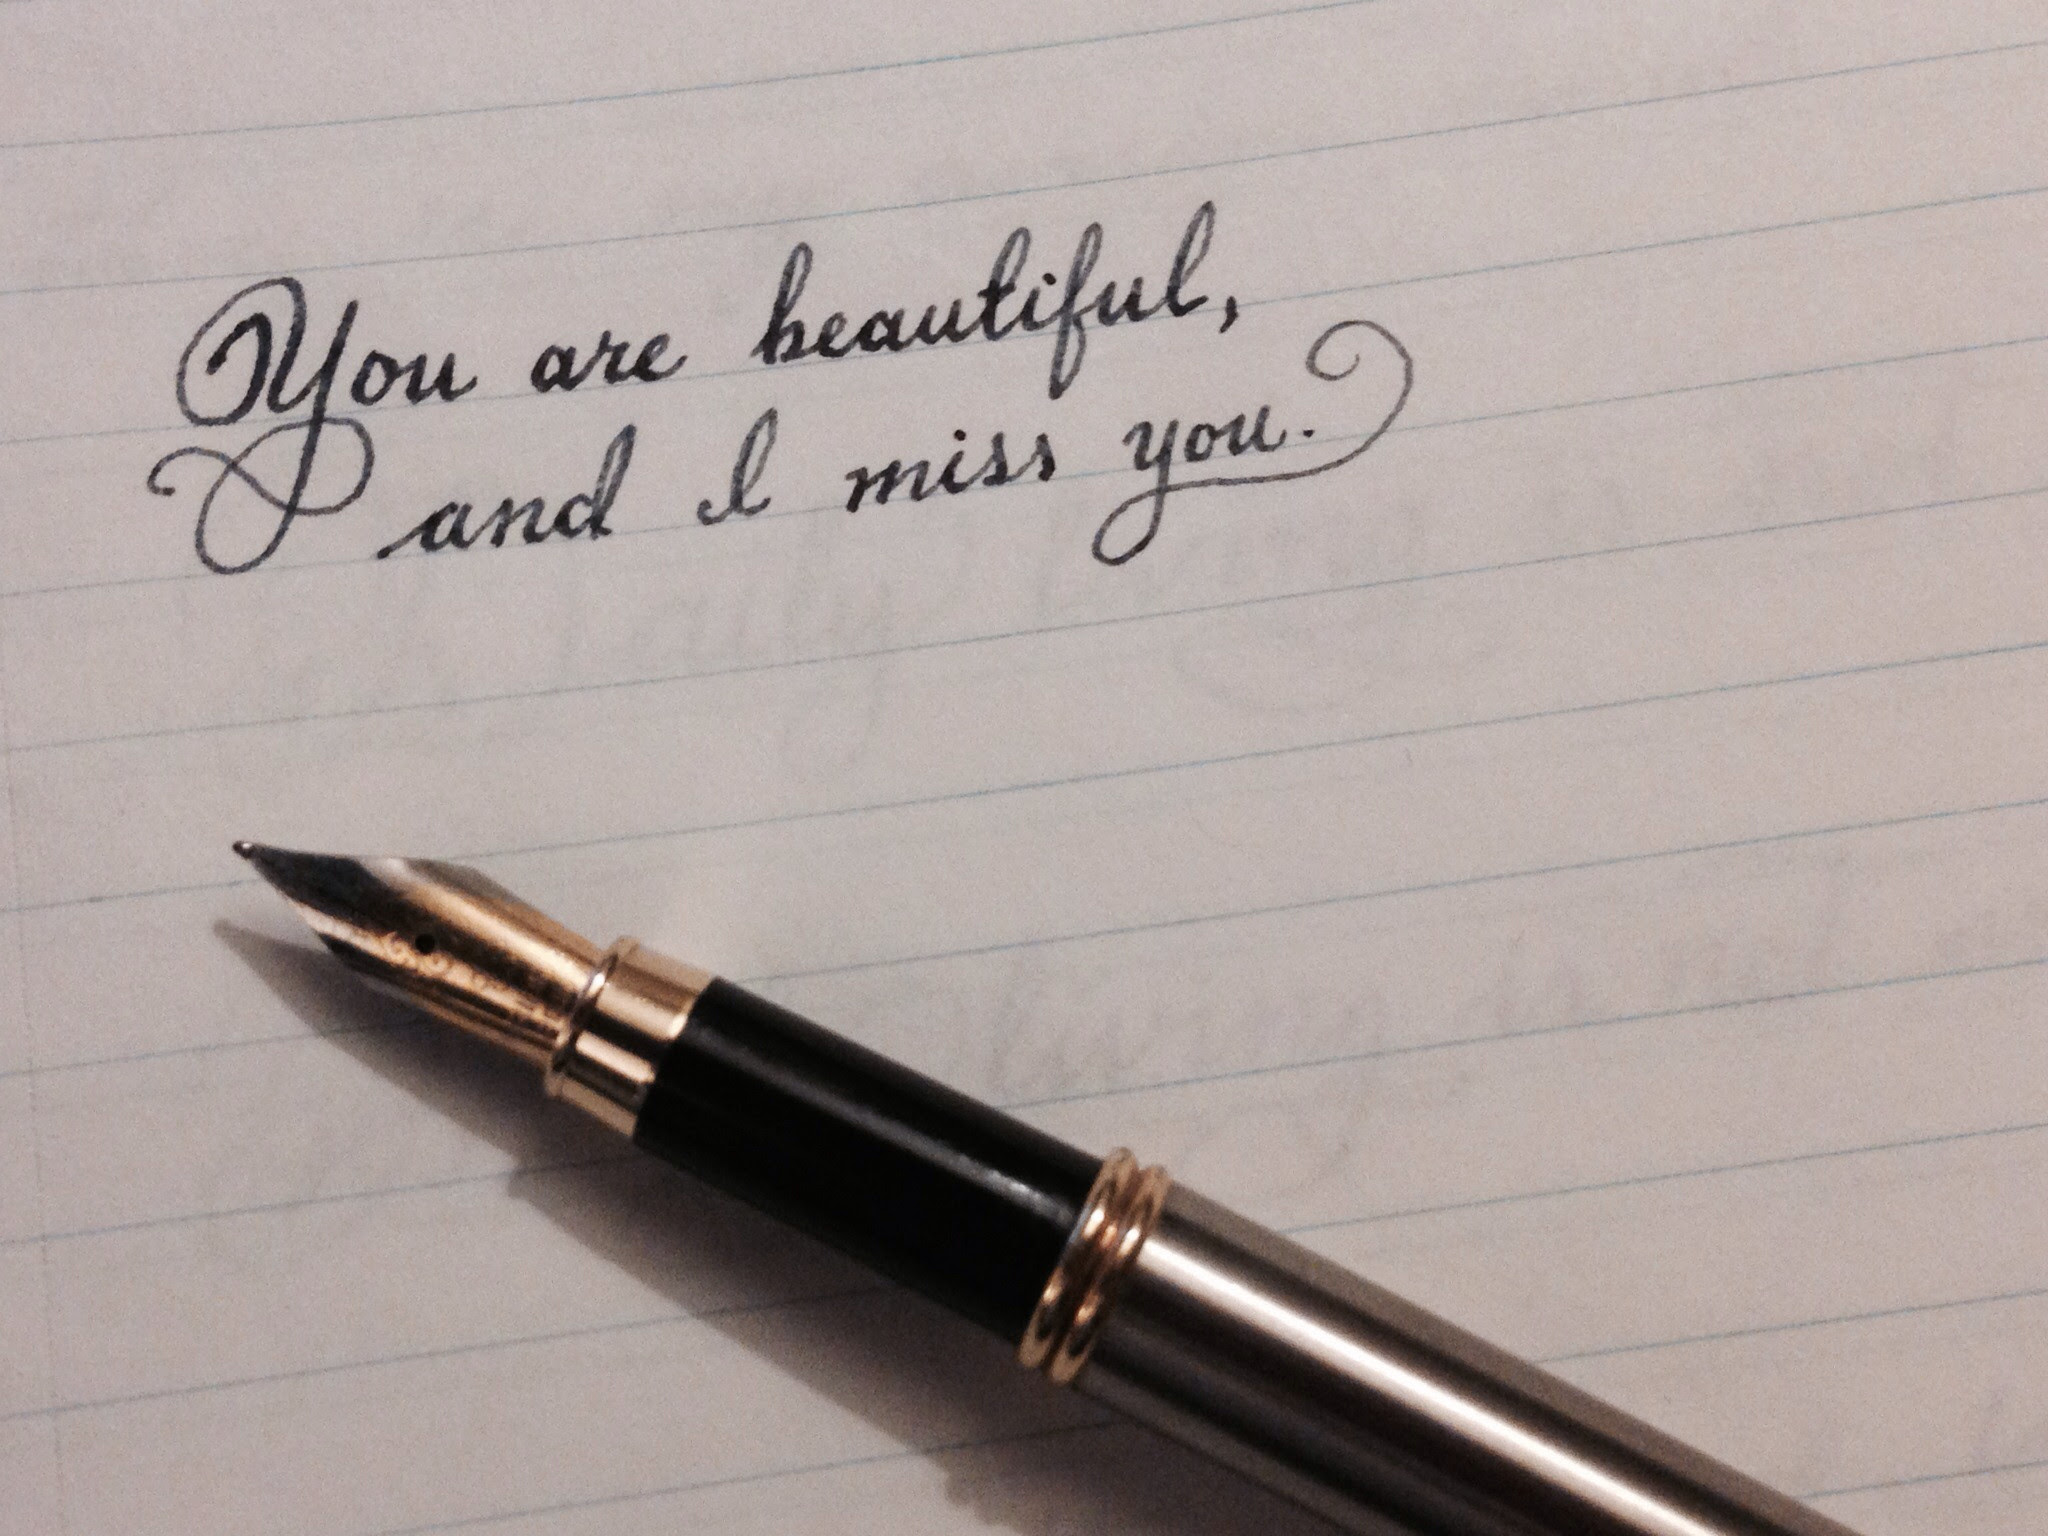 You are beautiful,
and I miss you.